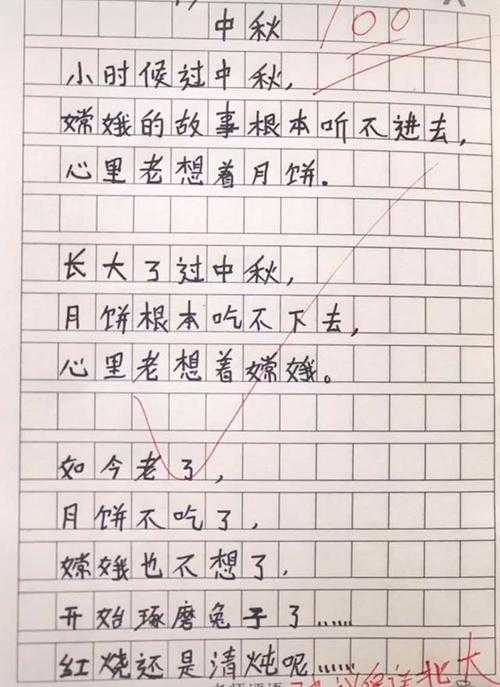 中秋 100
小时候过中秋,
嫦娥的故事根本听不进去,
心里老想着月饼.
长大了过中秋,
月饼根本吃不下去,
心里老想着嫦娥。
如今老了,
月饼不吃了,
嫦娥也不想了,
开始琢磨兔子了……
红烧还是清炖呢……
建议保送北大